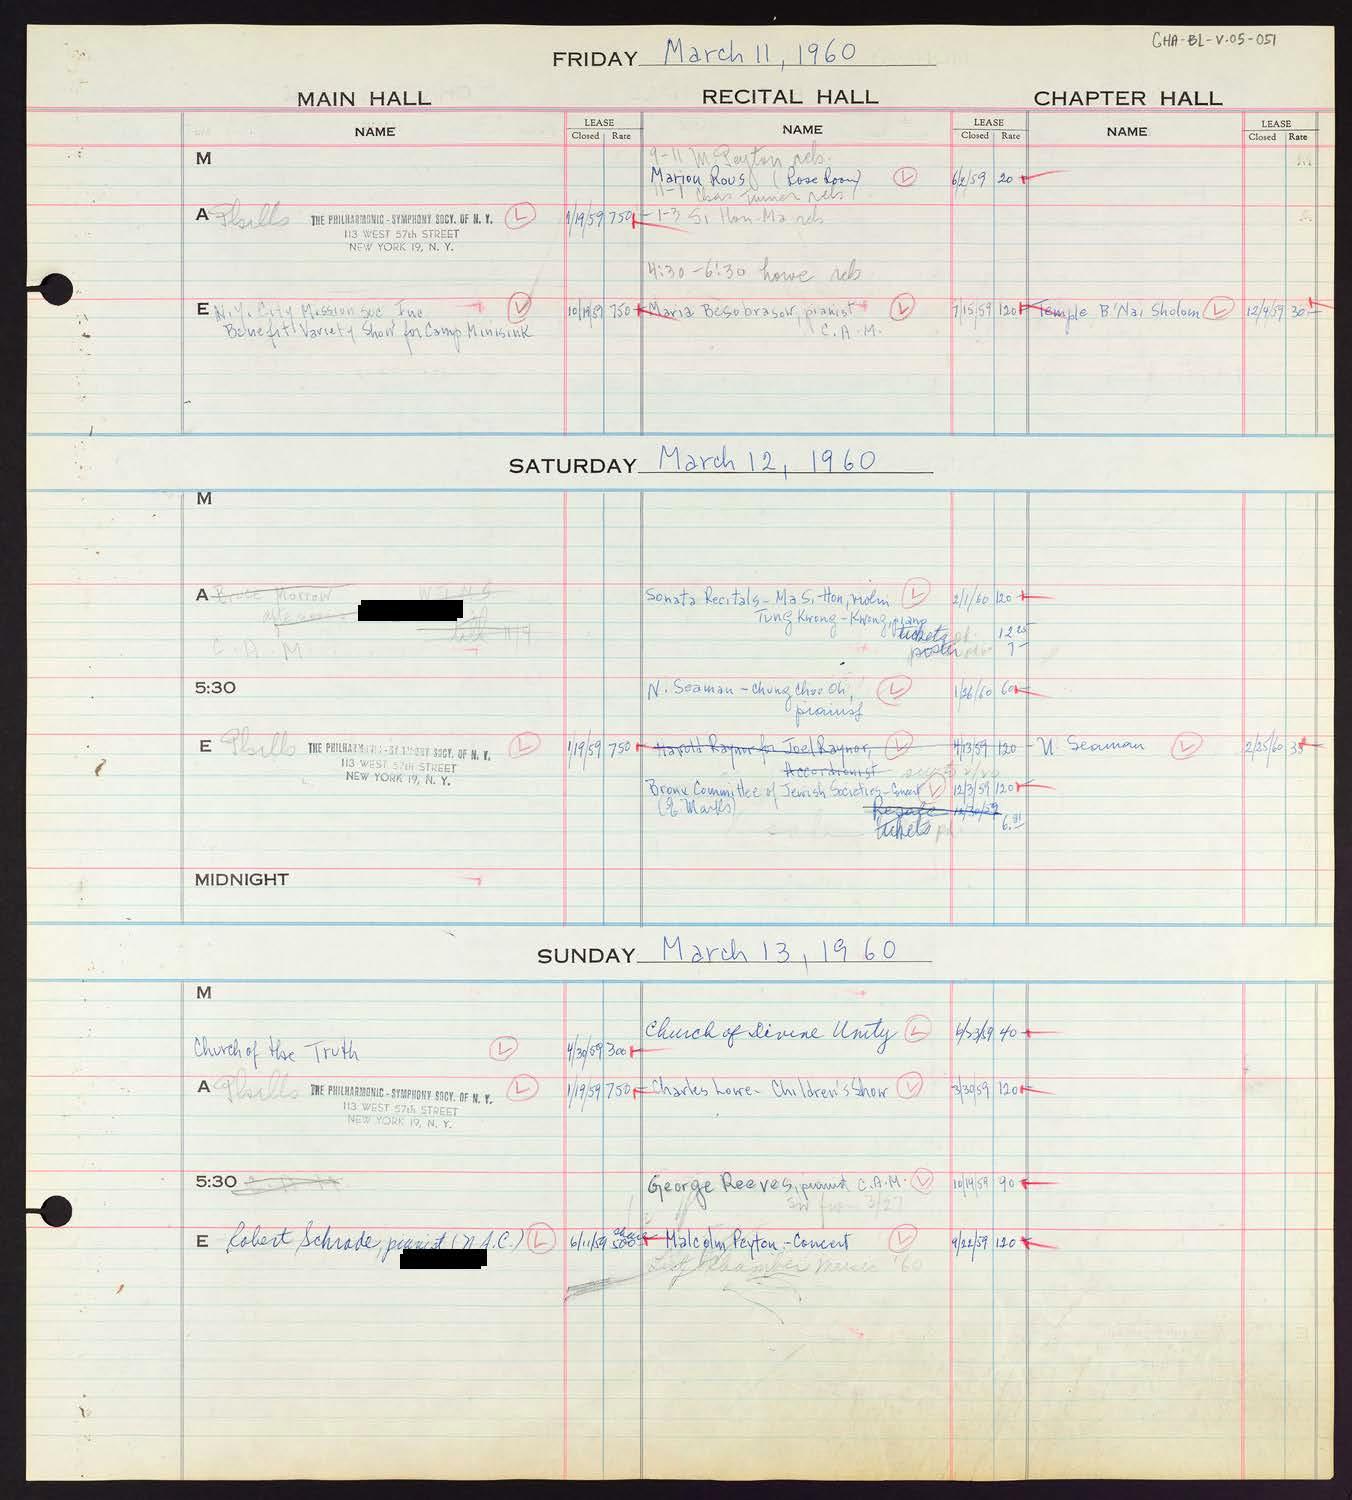 CHA-BL-V.05-051
FRIDAY March 11, 1960
MAIN HALL RECITAL HALL CHAPTER HALL
NAME LEASE Closed Rate NAME LEASE Closed Rate NAME LEASE Closed Rate
M
9-11 M Peyton reh.
Marion Rous (Rose Room) L 6/2/59 20
11-1 Chas Turner reh
A Phills THE PHILHARMONIC-SYMPHONY SOCY. OF N. Y. L 1/19/59 750 1-3 Si Hon Ma reh
113 WEST 57th STREET
NEW YORK 19, N. Y.
4:30-6:30 Lowe reh
E N.Y. City Mission Soc Inc L 10/19/59 750 Maria Besobrasow, pianist L 7/15/59 120 Temple B'Nai Sholom L 12/4/59 30
Benefit Variety Show for Camp Minisink C.A.M.
SATURDAY March 12, 1960
M
A Bruce Morrow WINS Sonata Recitals - Ma Si Hon, violin L 2/1/60 120
Tung Kwong-Kwong, piano
tickets 12
C.A.M poster 7
5:30 N. Seaman - Chung Choo Oh, L 1/26/60 60
pianist
E Phills THE PHILHARMONIC-SYMPHONY SOCY. OF N. Y. L 1/19/59 750 Harold Raynor for Joel Raynor, L 4/13/59 120 N. Seaman L 2/25/60 35
113 WEST 57th STREET Accordionist
NEW YORK 19, N. Y.
Bronx Committee of Jewish Societies - Concert L 12/3/59 120
tickets 6.
MIDNIGHT
SUNDAY March 13, 1960
M
Church of Divine Unity L 6/23/59 40
Church of the Truth L 4/30/59 300
A Phills THE PHILHARMONIC-SYMPHONY SOCY. OF N. Y. L 1/19/59 750 Charles Lowe - Children's Show L 3/30/59 120
113 WEST 57th STREET
NEW YORK 19, N. Y.
5:30 George Reeves, pianist C.A.M. L 10/14/59 90
SW from 3/27
E Robert Schrade, pianist (N.A.C.) L 6/11/59 500 Malcolm Peyton - Concert L 9/22/59 120
Chamber Music '60